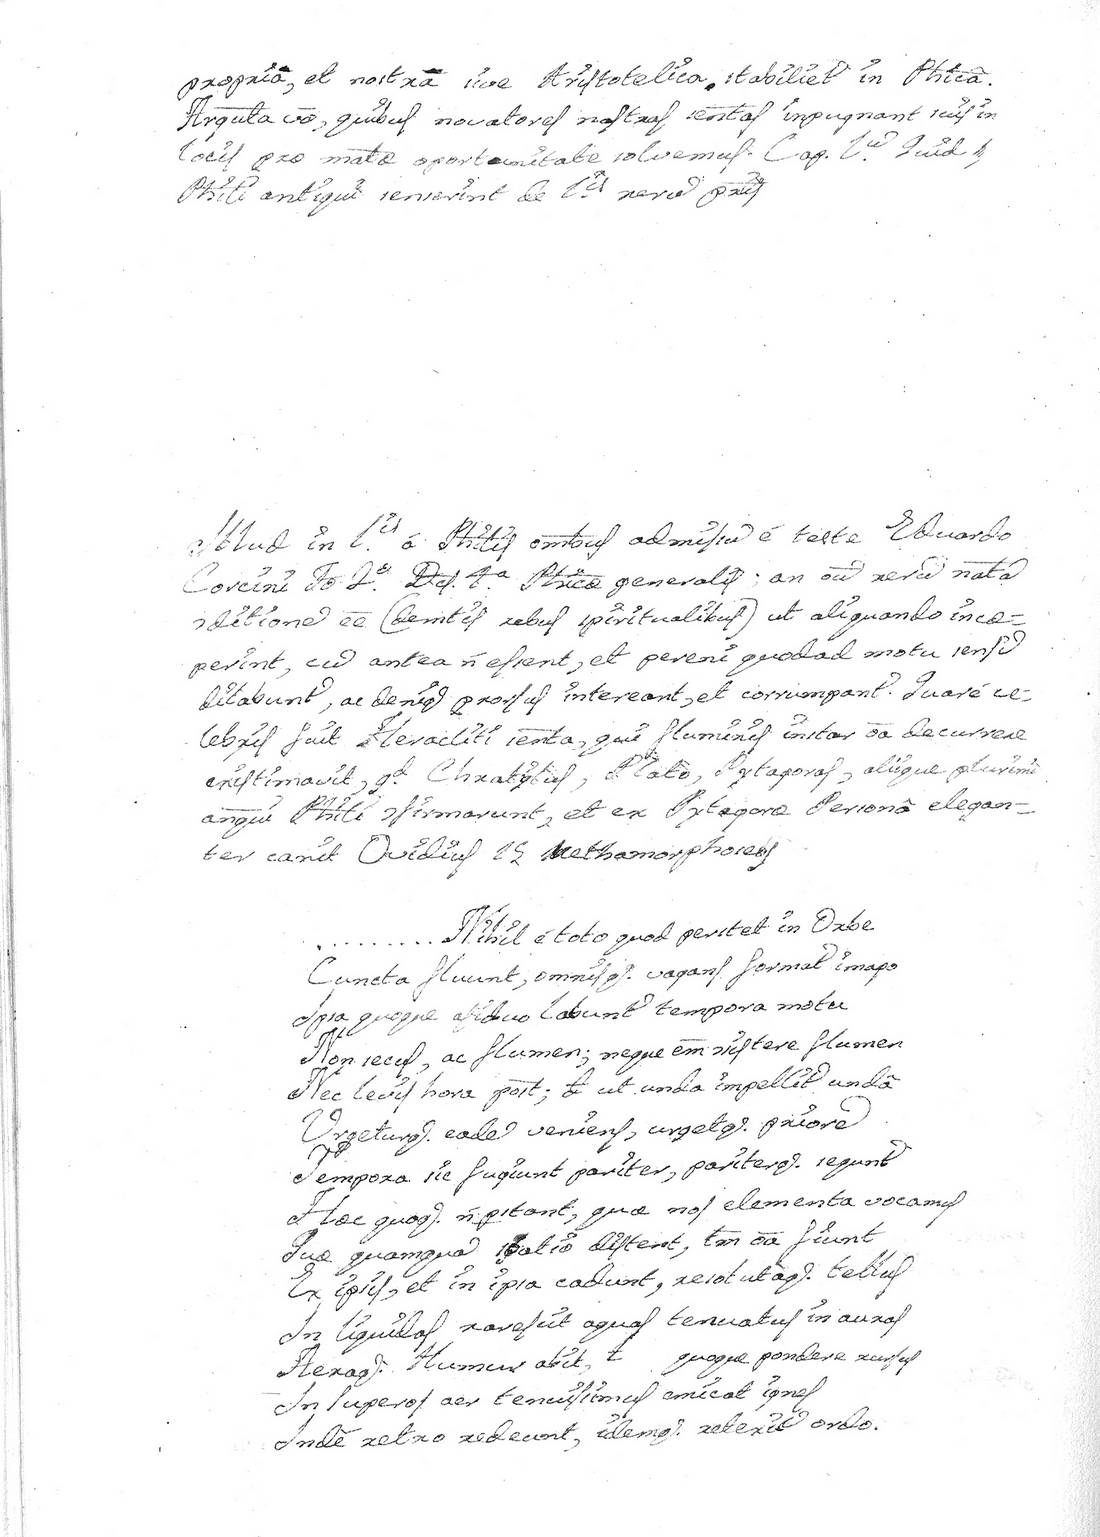 propriā, et nostrā sive Aristotelica, stabiliet in Phicā.
Argūta vō, quibus novatores nostras sentas inpugnant suis in
locis pro matæ oportunitate solvemus. Cap. 1.um Quid
Phili antiqui senserint de 1.is rerū priis
Illud in 1.is á Philis omībus admisū é teste Eduardo
Corcini To 2.º Dis. 1.ª Phicæ generalis; an oīu rerū natā
ditione eē (demtis rebus spiritualibus) ut aliquando incæ=
perint, cū antea ñ essent, et pereni quodad motu sensī
ditabunt, ac deniq prorsus intereant, et corrumpant. Quare ce=
lebris fuit Heracliti senta, qui fluminis instar oā decurrere
existimavit, qd Chratytus, Plato, Pytagoras, aliique plurimi
anqui Phili firmarunt, et ex Pytagoræ Personā elegan=
ter canit Ovidius 15 Methamorphoseos
......... Nihil é toto quod perstet in Orbe
Cuncta fluunt, omnisq. vagans format imago
Ipsa quoque asiduo labunt tempora motu
Non secus, ac flumen; neque em sistere flumen
Nec levis hora pōst; sd ut unda impellit undā
Urgeturq. eade veniens, urgetq. priore
Tempora sic fugiunt pariter, pariterq. segunt
Hæc quoq. ñ pstant, quæ nos elementa vocamus
Quæ quamqua spatio distent, tm oā fiunt
Ex ipsis, et in ipsa cadunt, resolutaq. tellus
In liquidas raresit aquas tenuatus in auras
Aeraq. Humur abit, t quoque pondere rursus
In superos aer tenuisimus emicat ignes
Inde retro redeunt, idemq. retexit ordo.